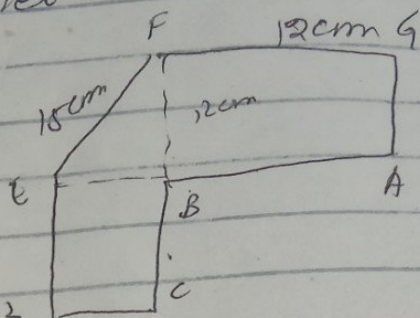 F
12cm G
15cm
12cm
E
B
A
C